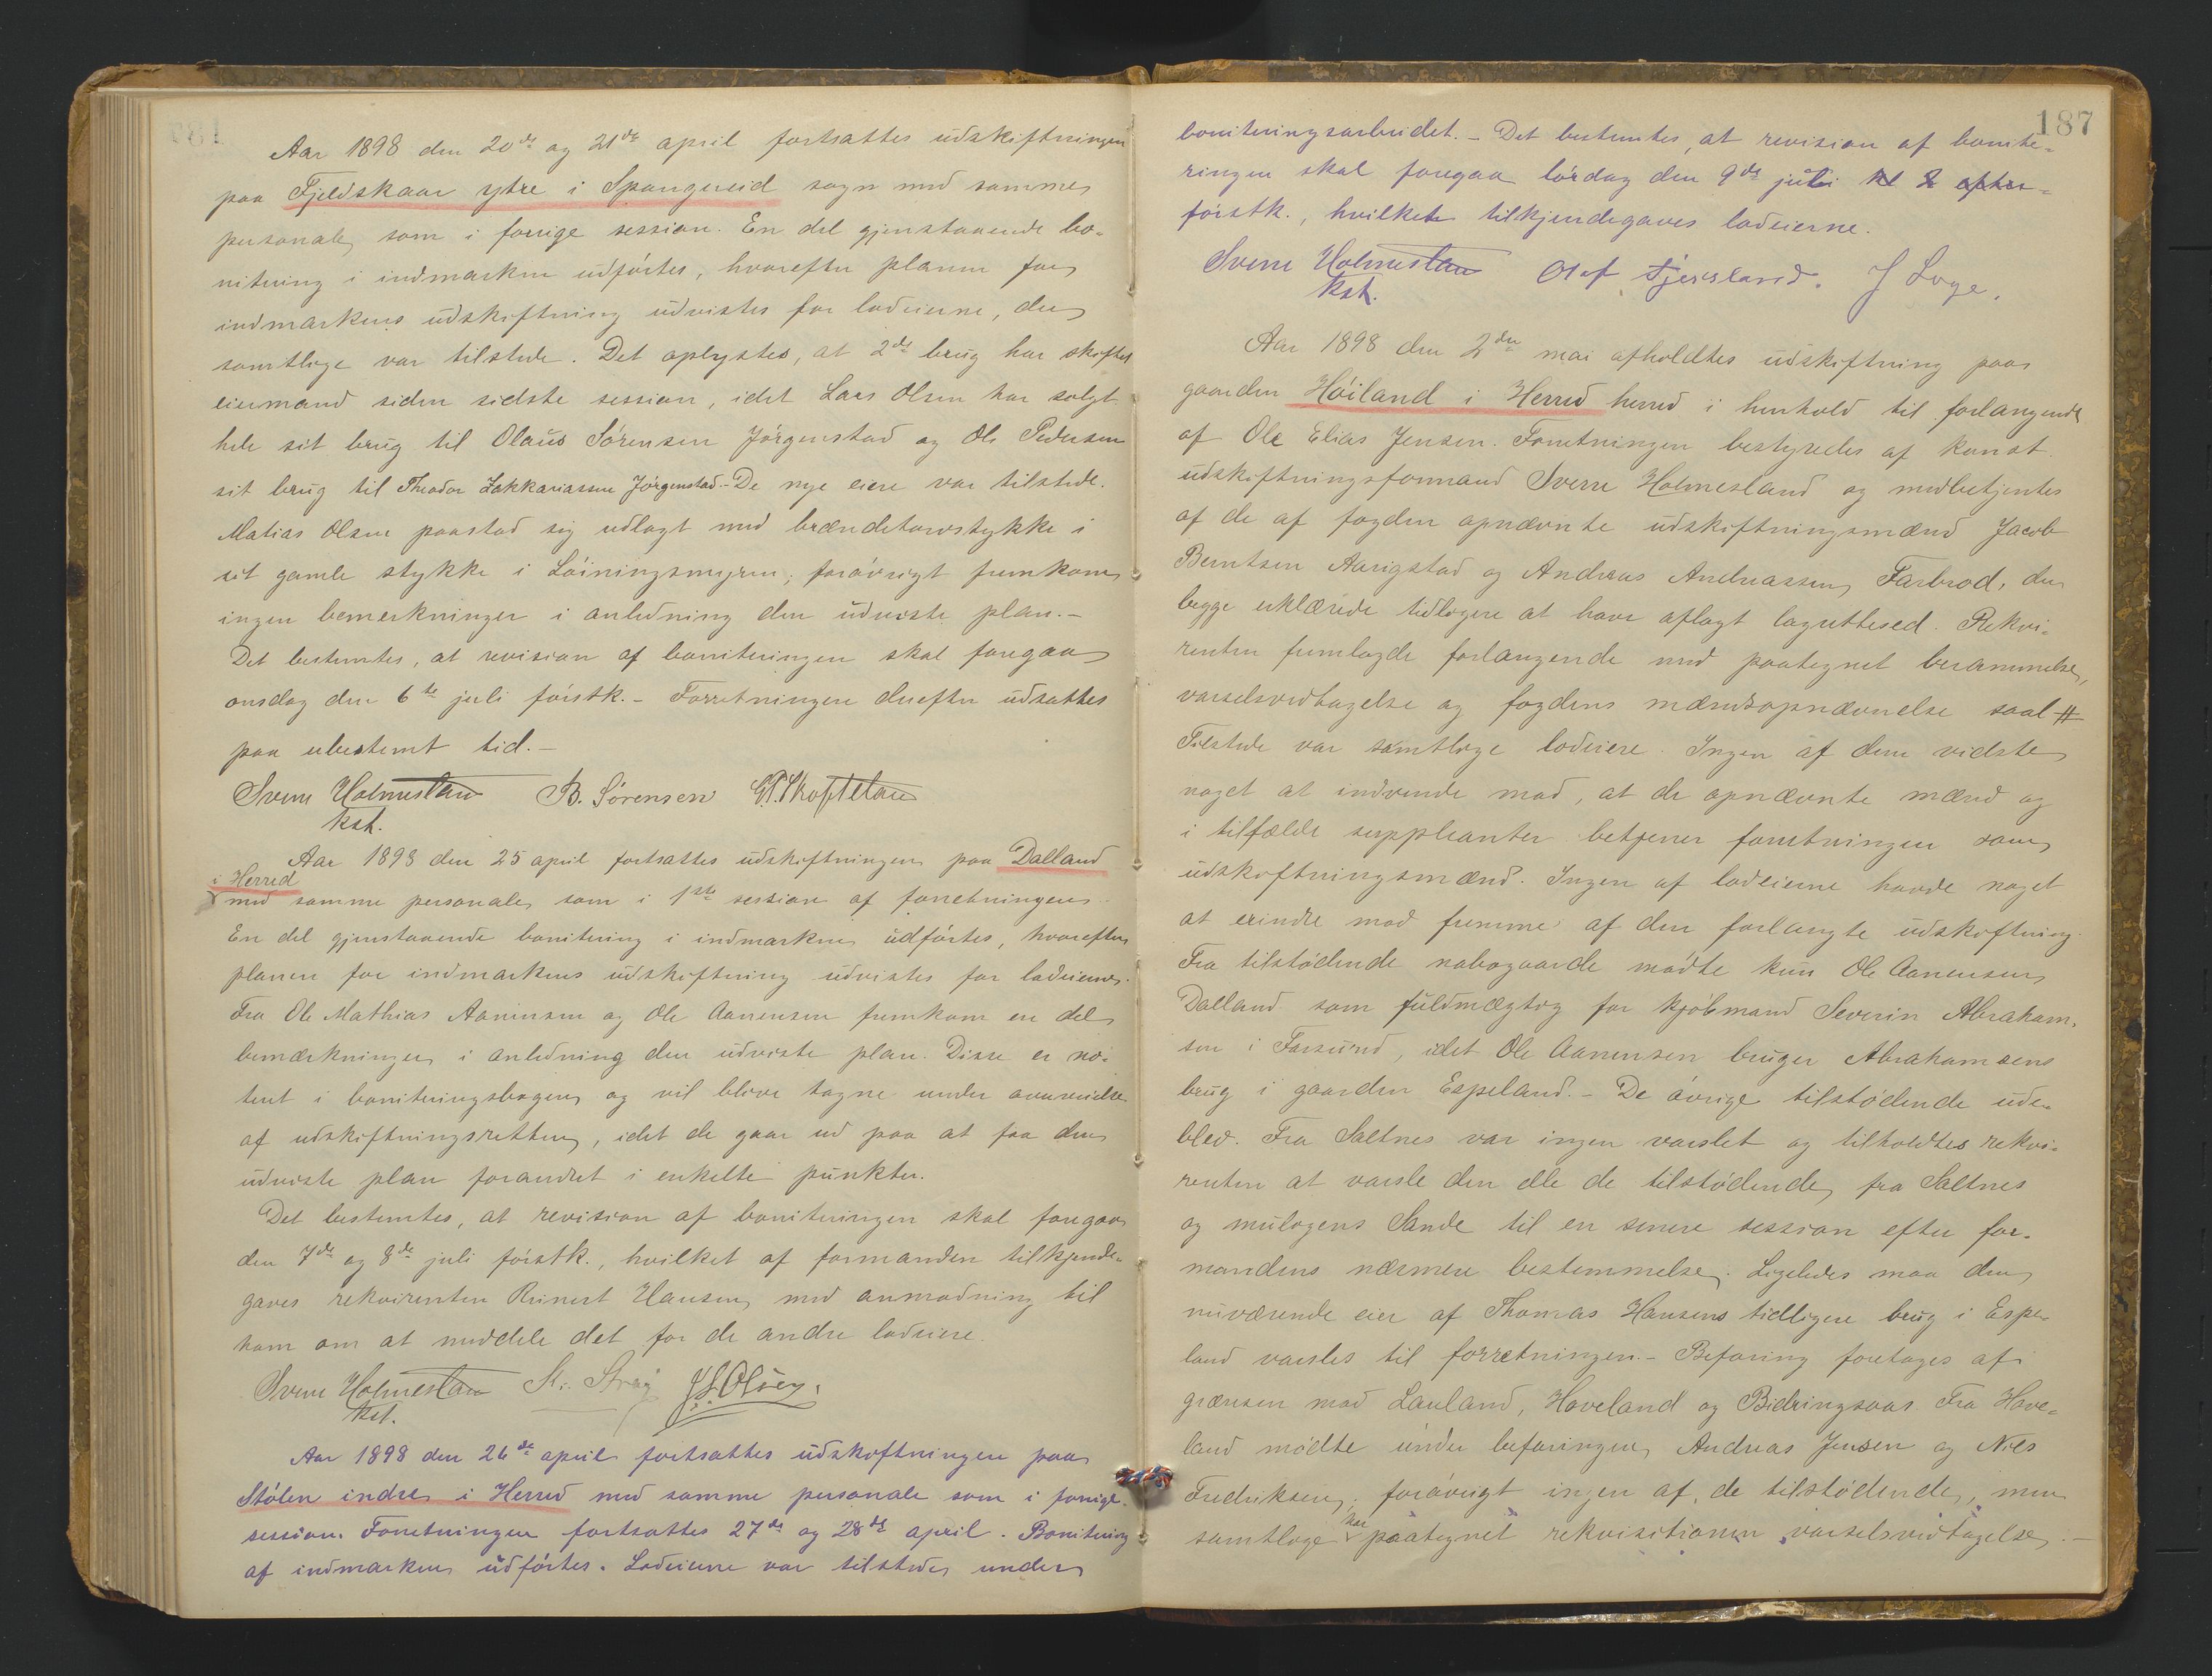 Aar 1898 den 20de og 21de april fortsattes udskiftningen
paa Fjeldskaar ytre i Spangereid sogn med samme
personale som i forrige session. En del gjenstaaende bo-
nitering i indmarken udførtes, hvorefter planen for
indmarkens udskiftning udvistes for lodeierne, der
samtlige var tilstede. Det oplystes, at 2de brug har skiftet
eiermand siden sidste session, idet Lars Olsen har solgt
hele sit brug til Olaus Sørensen Jørgenstad og Ole Pedersen
sit brug til Theodor Zakkariassen Jørgenstad. - De nye eiere var tilstede.
Matias Olsen paastod sig udlagt med brændetorvstykke i
sit gamle stykke i Løiningsmyren; forøvrigt fremkom
ingen bemerkninger i anledning den udviste plan. -
Det bestemtes, at revision af boniteringen skal foregaa
onsdag den 6te juli førstk. - Forretningen derefter udsattes
paa ubestemt tid. -
Sverre Holmesland B. Sørensen G. T. Skofteland
kst.
Aar 1898 den 25 april fortsattes udskiftningen paa Dalland
i Herred
med samme personale som i 1ste session af forretningen.
En del gjenstaaende bonitering i indmarken udførtes, hvorefter
planen for indmarkens udskiftning udvistes for lodeierne.
Fra Ole Mathias Aanensen og Ole Aanensen fremkom en del
bemærkninger i anledning den udviste plan. Disse er no-
teret i boniteringsbogen og vil blive tagne under overveielse
af udskiftningsretten, idet de gaar ud paa at faa den
udviste plan forandret i enkelte punkter.
Det bestemtes, at revision af boniteringen skal foregaa
den 7de og 8de juli førstk., hvilket af formanden tilkjende-
gaves rekvirenten Reinert Hansen med anmodning til
ham om at meddele det for de andre lodeiere.
Sverre Holmesland St. Stray J. S. Olsen.
kst.
Aar 1898 den 26de april fortsattes udskiftningen paa
Stølen indre i Herred med samme personale som i forrige
session. Forretningen fortsattes 27de og 28de april. Bonitering
af indmarken udførtes. Lodeierne var tilstede under
187
boniteringsarbeidet. - Det bestemtes, at revision af bonite-
ringen skal foregaa lørdag den 9de juli kl 2 efter-
førstk., hvilket tilkjendegaves lodeierne.
Sverre Holmesland Olaf Fjeresland. J Loge.
kst.
Aar 1898 den 2den mai afholdtes udskiftning paa
gaarden Høiland i Herred herred i henhold til forlangende
af Ole Elias Jensen. Forretningen bestyredes af konst.
udskiftningsformand Sverre Holmesland og medbetjentes
af de af fogden opnævnte udskiftningsmænd Jacob
Berntsen Aarigstad og Andreas Andreassen Farbrod, der
begge erklærede tidligere at have aflagt lagrettesed. Rekvi-
renten fremlagde forlangende med paategnet berammelse,
varselsvedtagelse og fogdens mændsopnævnelse saal #
Tilstede var samtlige lodeiere. Ingen af dem vidste
noget at indvende mod, at de opnævnte mænd og
i tilfælde suppleanter betjener forretningen som
udskiftningsmænd. Ingen af lodeierne havde noget
at erindre mod fremme af den forlangte udskiftning.
Fra tilstødende nabogaarde mødte kun Ole Aanensen
Dalland som fuldmægtig for kjøbmand Severin Abraham-
sen i Farsund, idet Ole Aanensen bruger Abrahamsens
brug i gaarden Espeland. - De øvrige tilstødende ude-
blev. Fra Saltnes var ingen varslet og tilholdtes rekvi-
renten at varsle den elle de tilstødende fra Saltnes
og muligens Sande til en senere session efter for-
mandens nærmere bestemmelse. Ligeledes maa den
nuværende eier af Thomas Hansens tidligere brug i Espe-
land varsles til forretningen. - Befaring foretoges af
grænsen mod Lauland, Haveland og Bidringsaas. Fra Have-
land mødte under befaringen Andreas Jensen og Nils
Fredriksen, forøvrigt ingen af de tilstødende, men
har
samtlige paategnet rekvisitionen varselsvedtagelse. -